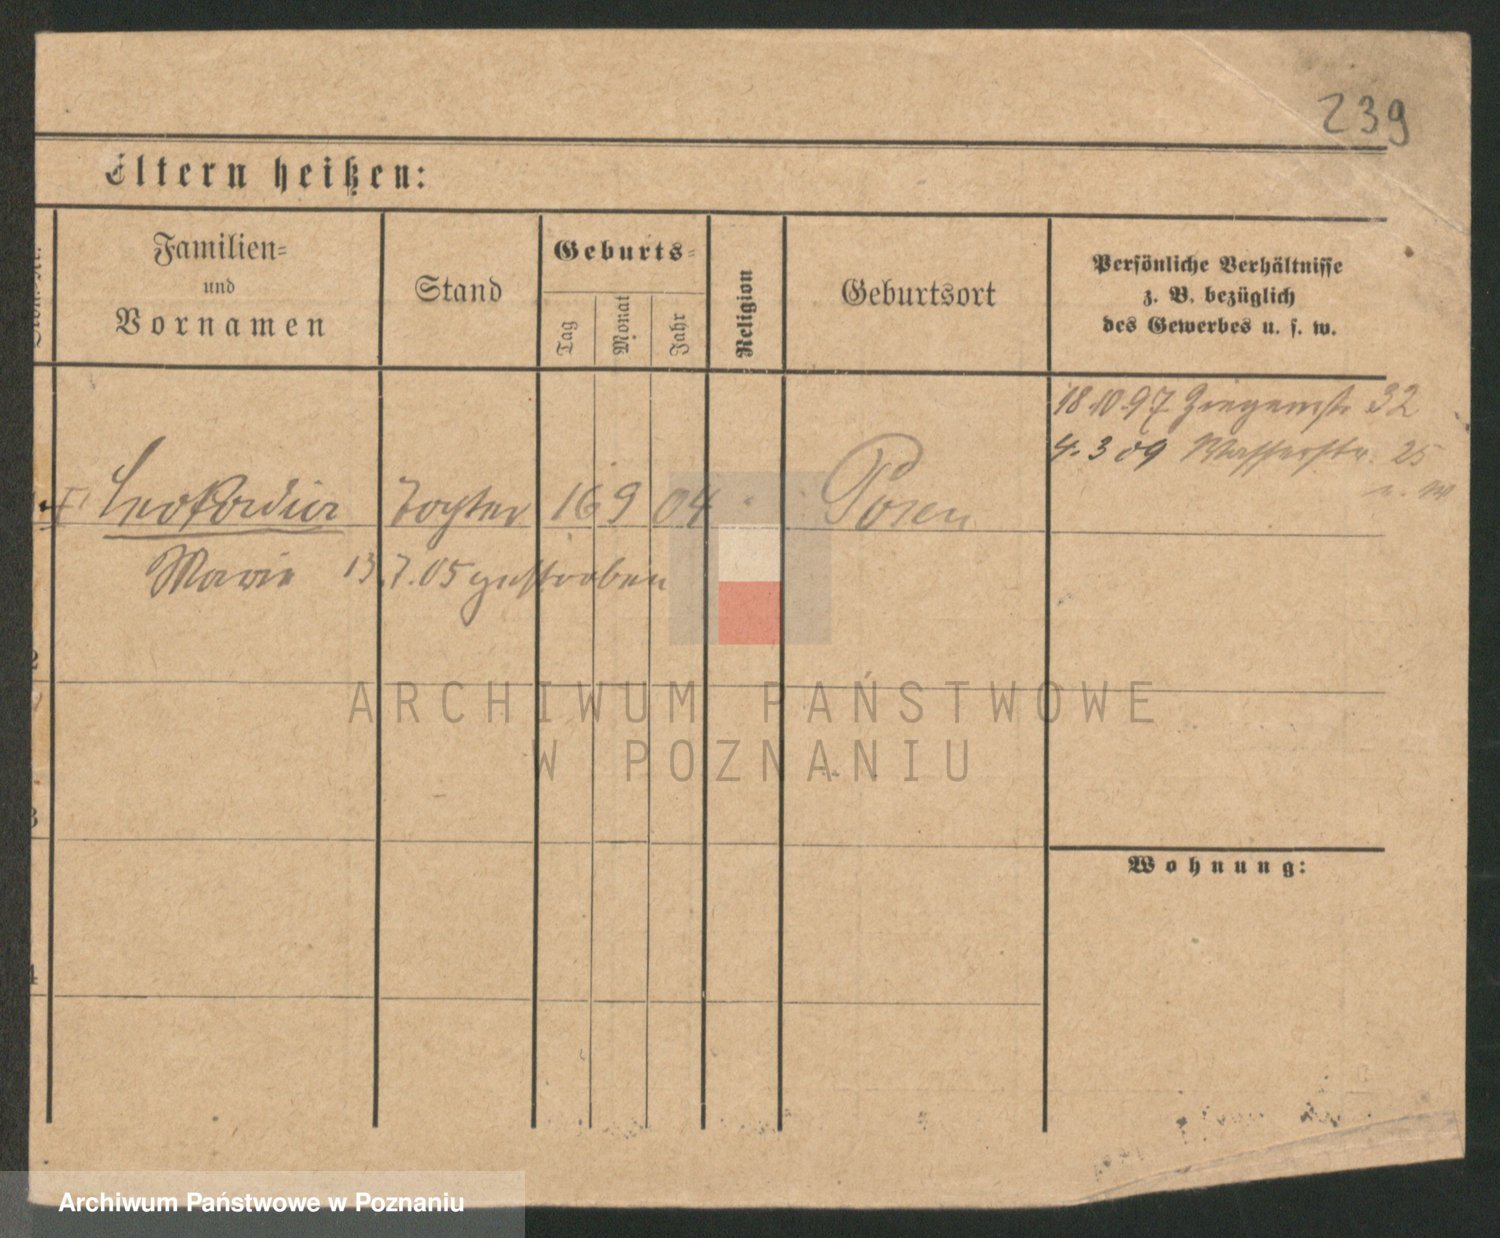 239
Eltern heißen:
Familien=
und
Vornamen
Stand
Geburts=
Tag
Monat
Jahr
Religion
Geburtsort
Persönliche Verhältnisse
z. B. bezüglich
des Gewerbes u. s. w.
18.10.97 32
4.3 09 Wasserstr. 25
Leokardia Tochter 16 9 04 Posen
Marie 13.7.05 gestorben
3
4
Wohnung:
ARCHIWUM PAŃSTWOWE
W POZNANIU
Archiwum Państwowe w Poznaniu